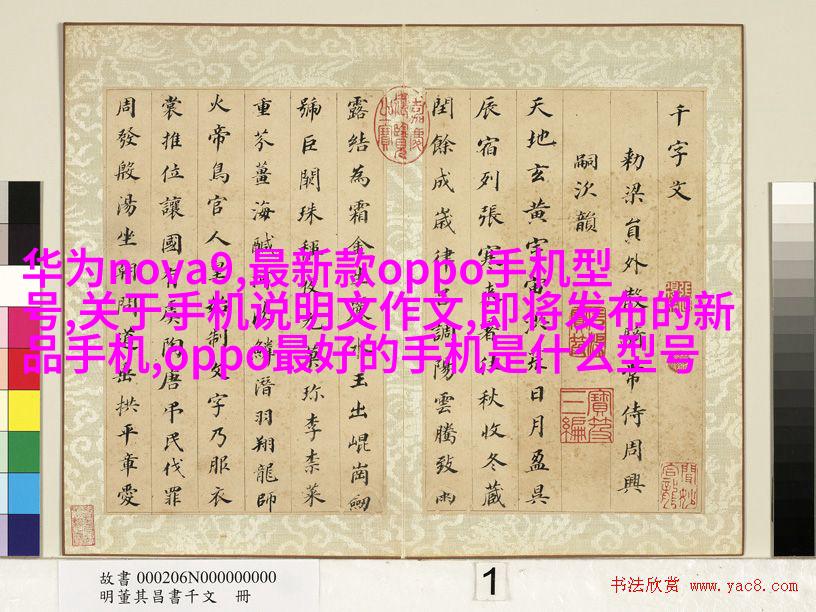 千字文
勅梁員外散騎常侍周興
嗣次韻
天地玄黃宇宙洪荒日月盈昃
辰宿列張寒來暑往秋收冬藏
閏餘成歲律呂調陽雲騰致雨
露結為霜金生麗水玉出崐岡劒
號巨闕珠稱夜光菓珍李柰菜
重芥薑海鹹河淡鱗潛羽翔龍師
火帝鳥官人皇始制文字乃服衣
裳推位讓國有虞陶唐弔民伐罪
周發殷湯坐朝問道垂拱平章愛
寶笈
三編
华为nova9,最新款oppo手机型
号,关于手机说明文作文,即将发布的新
品手机,oppo最好的手机是什么型号
故書 000206N000000000
明董其昌書千文 冊
1
书法欣赏 www.yac8.com